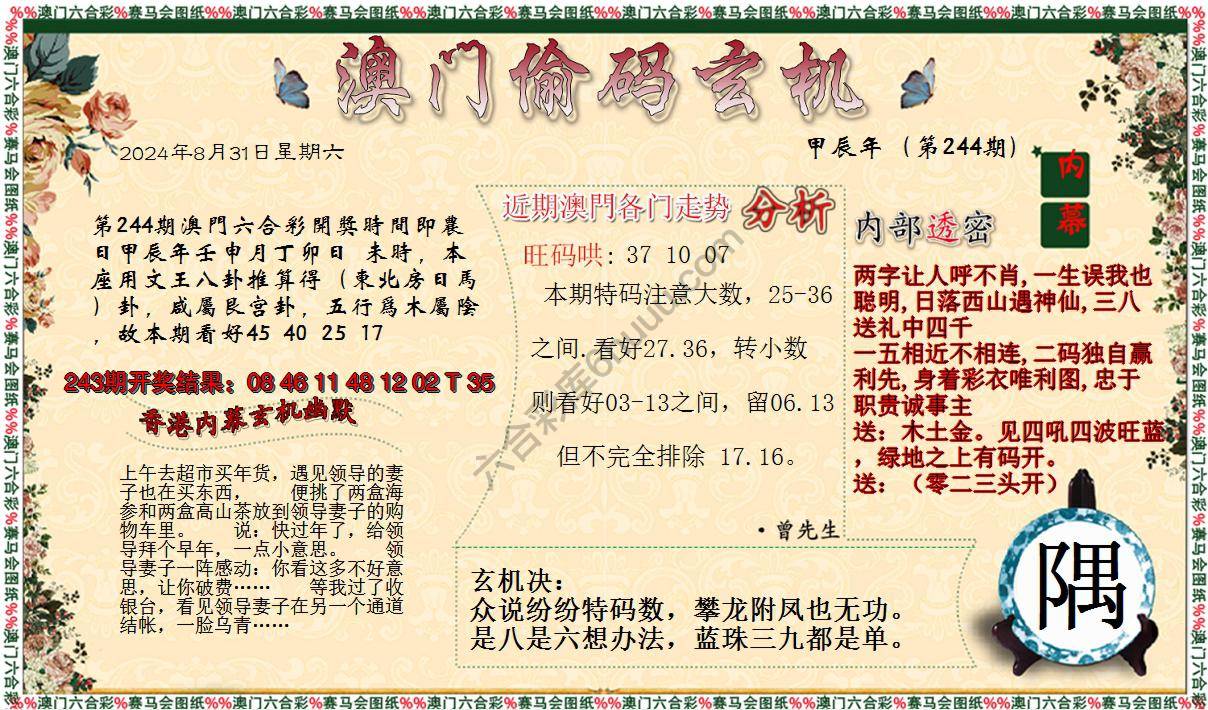 %%澳门六合彩%赛马会图纸%%澳门六合彩%赛马会图纸%%澳门六合彩%赛马会图纸%%澳门六合彩%赛马会图纸%%澳门六合彩%赛马会图纸%%澳门六合彩%赛马会图纸%%
澳门偷码玄机
2024年8月31日星期六
甲辰年（第244期）
内幕
第244期澳門六合彩開獎時間即農
日甲辰年壬申月丁卯日 未時，本
座用文王八卦推算得（東北房日馬
）卦，咸屬艮宫卦，五行爲木屬陰
，故本期看好45 40 25 17
243期开奖结果：08 46 11 48 12 02 T 35
香港内幕玄机幽默
上午去超市买年货，遇见领导的妻
子也在买东西， 便挑了两盒海
参和两盒高山茶放到领导妻子的购
物车里。 说：快过年了，给领
导拜个早年，一点小意思。 领
导妻子一阵感动：你看这多不好意
思，让你破费…… 等我过了收
银台，看见领导妻子在另一个通道
结帐，一脸乌青……
近期澳門各门走势 分析
旺码哄: 37 10 07
本期特码注意大数，25-36
之间.看好27.36，转小数
则看好03-13之间，留06.13
但不完全排除 17.16。
·曾先生
内部透密
两字让人呼不肖,一生误我也
聪明,日落西山遇神仙,三八
送礼中四千
一五相近不相连,二码独自赢
利先,身着彩衣唯利图,忠于
职贵诚事主
送：木土金。见四吼四波旺蓝
，绿地之上有码开。
送：（零二三头开）
玄机决：
众说纷纷特码数，攀龙附凤也无功。
是八是六想办法，蓝珠三九都是单。
隅
%%澳门六合彩%赛马会图纸%%澳门六合彩%赛马会图纸%%澳门六合彩%赛马会图纸%%澳门六合彩%赛马会图纸%%澳门六合彩%赛马会图纸%%澳门六合彩%赛马会图纸%%